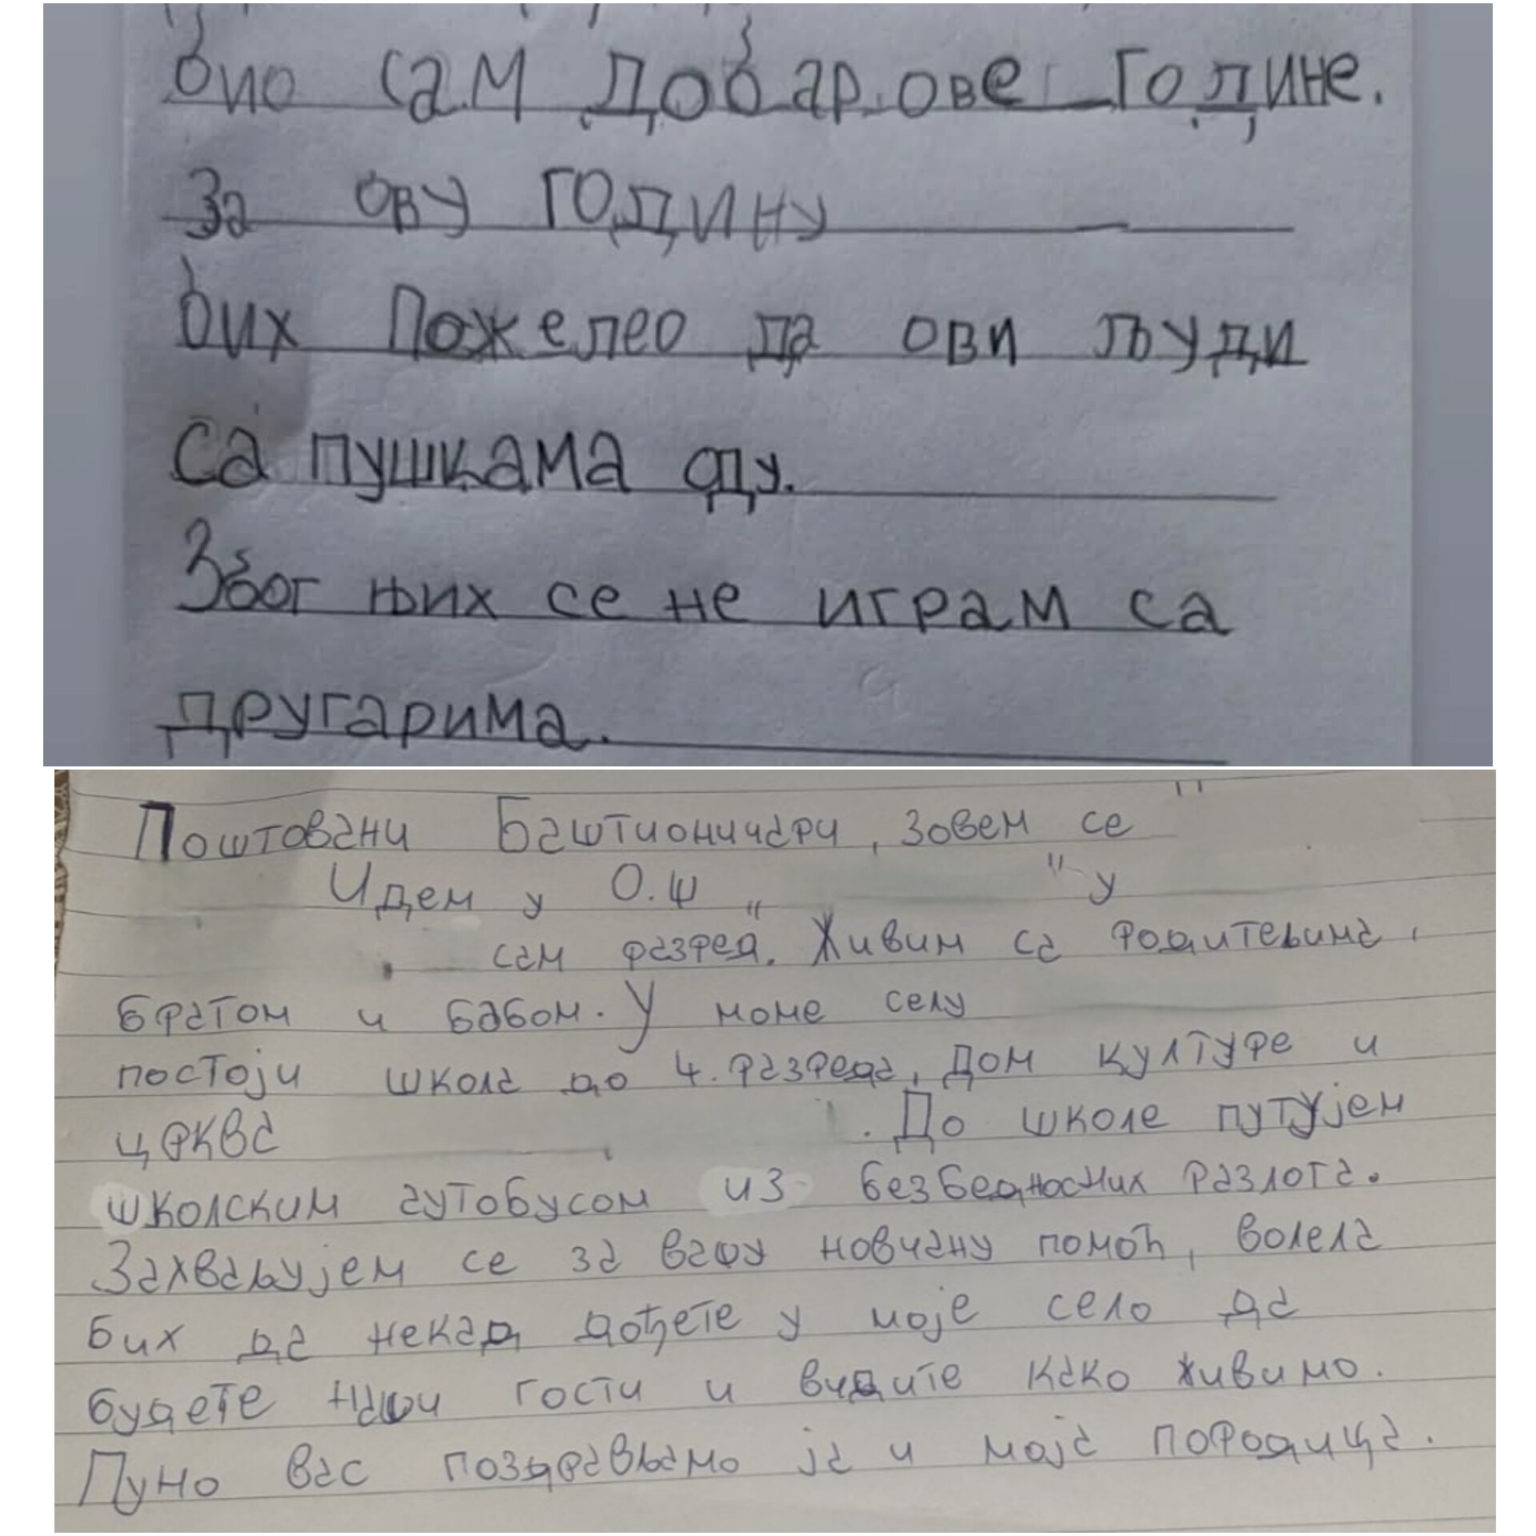 био сам добар ове године.
За ову годину
бих пожелео да ови људи
са пушкама оду.
Због њих се не играм са
другарима.
Поштовани Баштионичари, зовем се "
Идем у О.Ш „ " у
сам разред. Живим са родитељима,
братом и бабом. У моме селу
постоји школа до 4. разреда, дом културе и
црква . До школе путујем
школским аутобусом из безбедносних разлога.
Захваљујем се за вашу новчану помоћ, волела
бих да некад дођете у моје село да
будете наши гости и видите како живимо.
Пуно вас поздрављамо ја и моја породица.